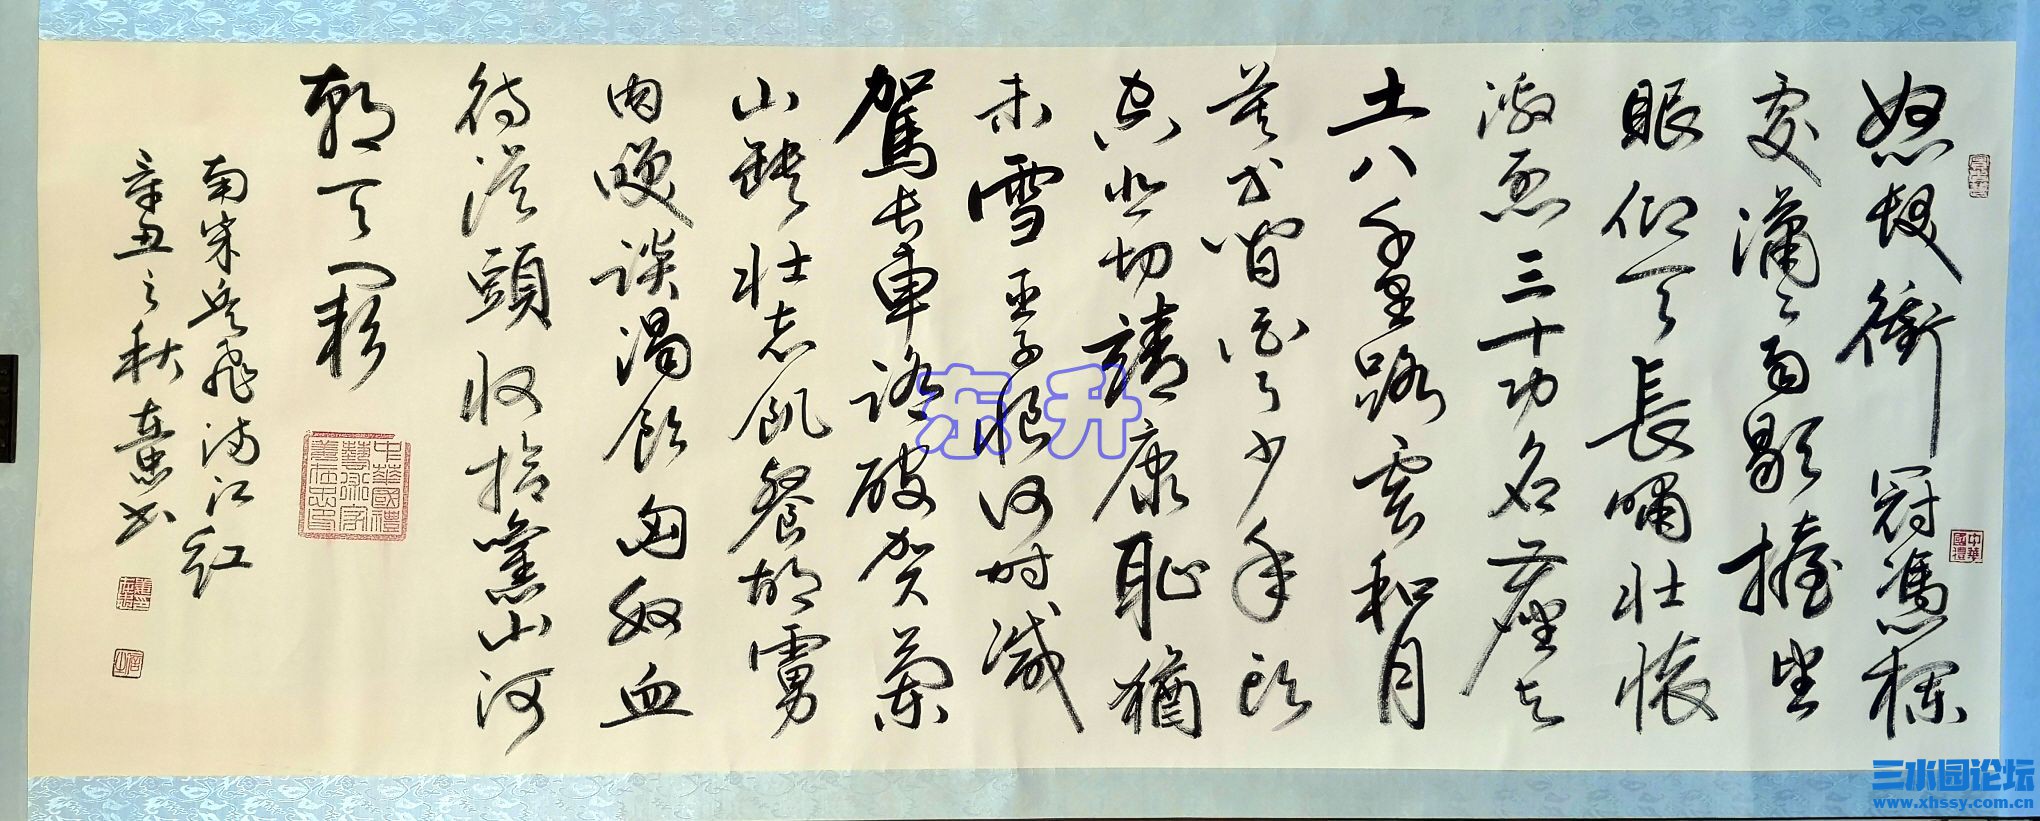 怒髮衝冠憑欄
處瀟々雨歇擡望
眼仰天長嘯壯懷
激烈三十功名塵与
土八千里路雲和月
莫等閒白了少年頭
空悲切靖康恥猶
未雪臣子恨何時滅
駕長車踏破賀蘭
山缺壯志飢餐胡虜
肉笑談渴飲匈奴血
待從頭收拾舊山河
朝天闕
南宋岳飛滿江紅
辛丑之秋
中華國禮
中華國禮藝術家
东升
三水园论坛
www.xhssy.com.cn